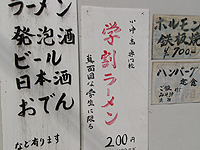 ラーメン
発泡酒
ビール
日本酒
おでん
など有ります
学割ラーメン
真面目な学生に限る
200円
ホルモン
鉄板焼
¥700
ハンバーグ
定食